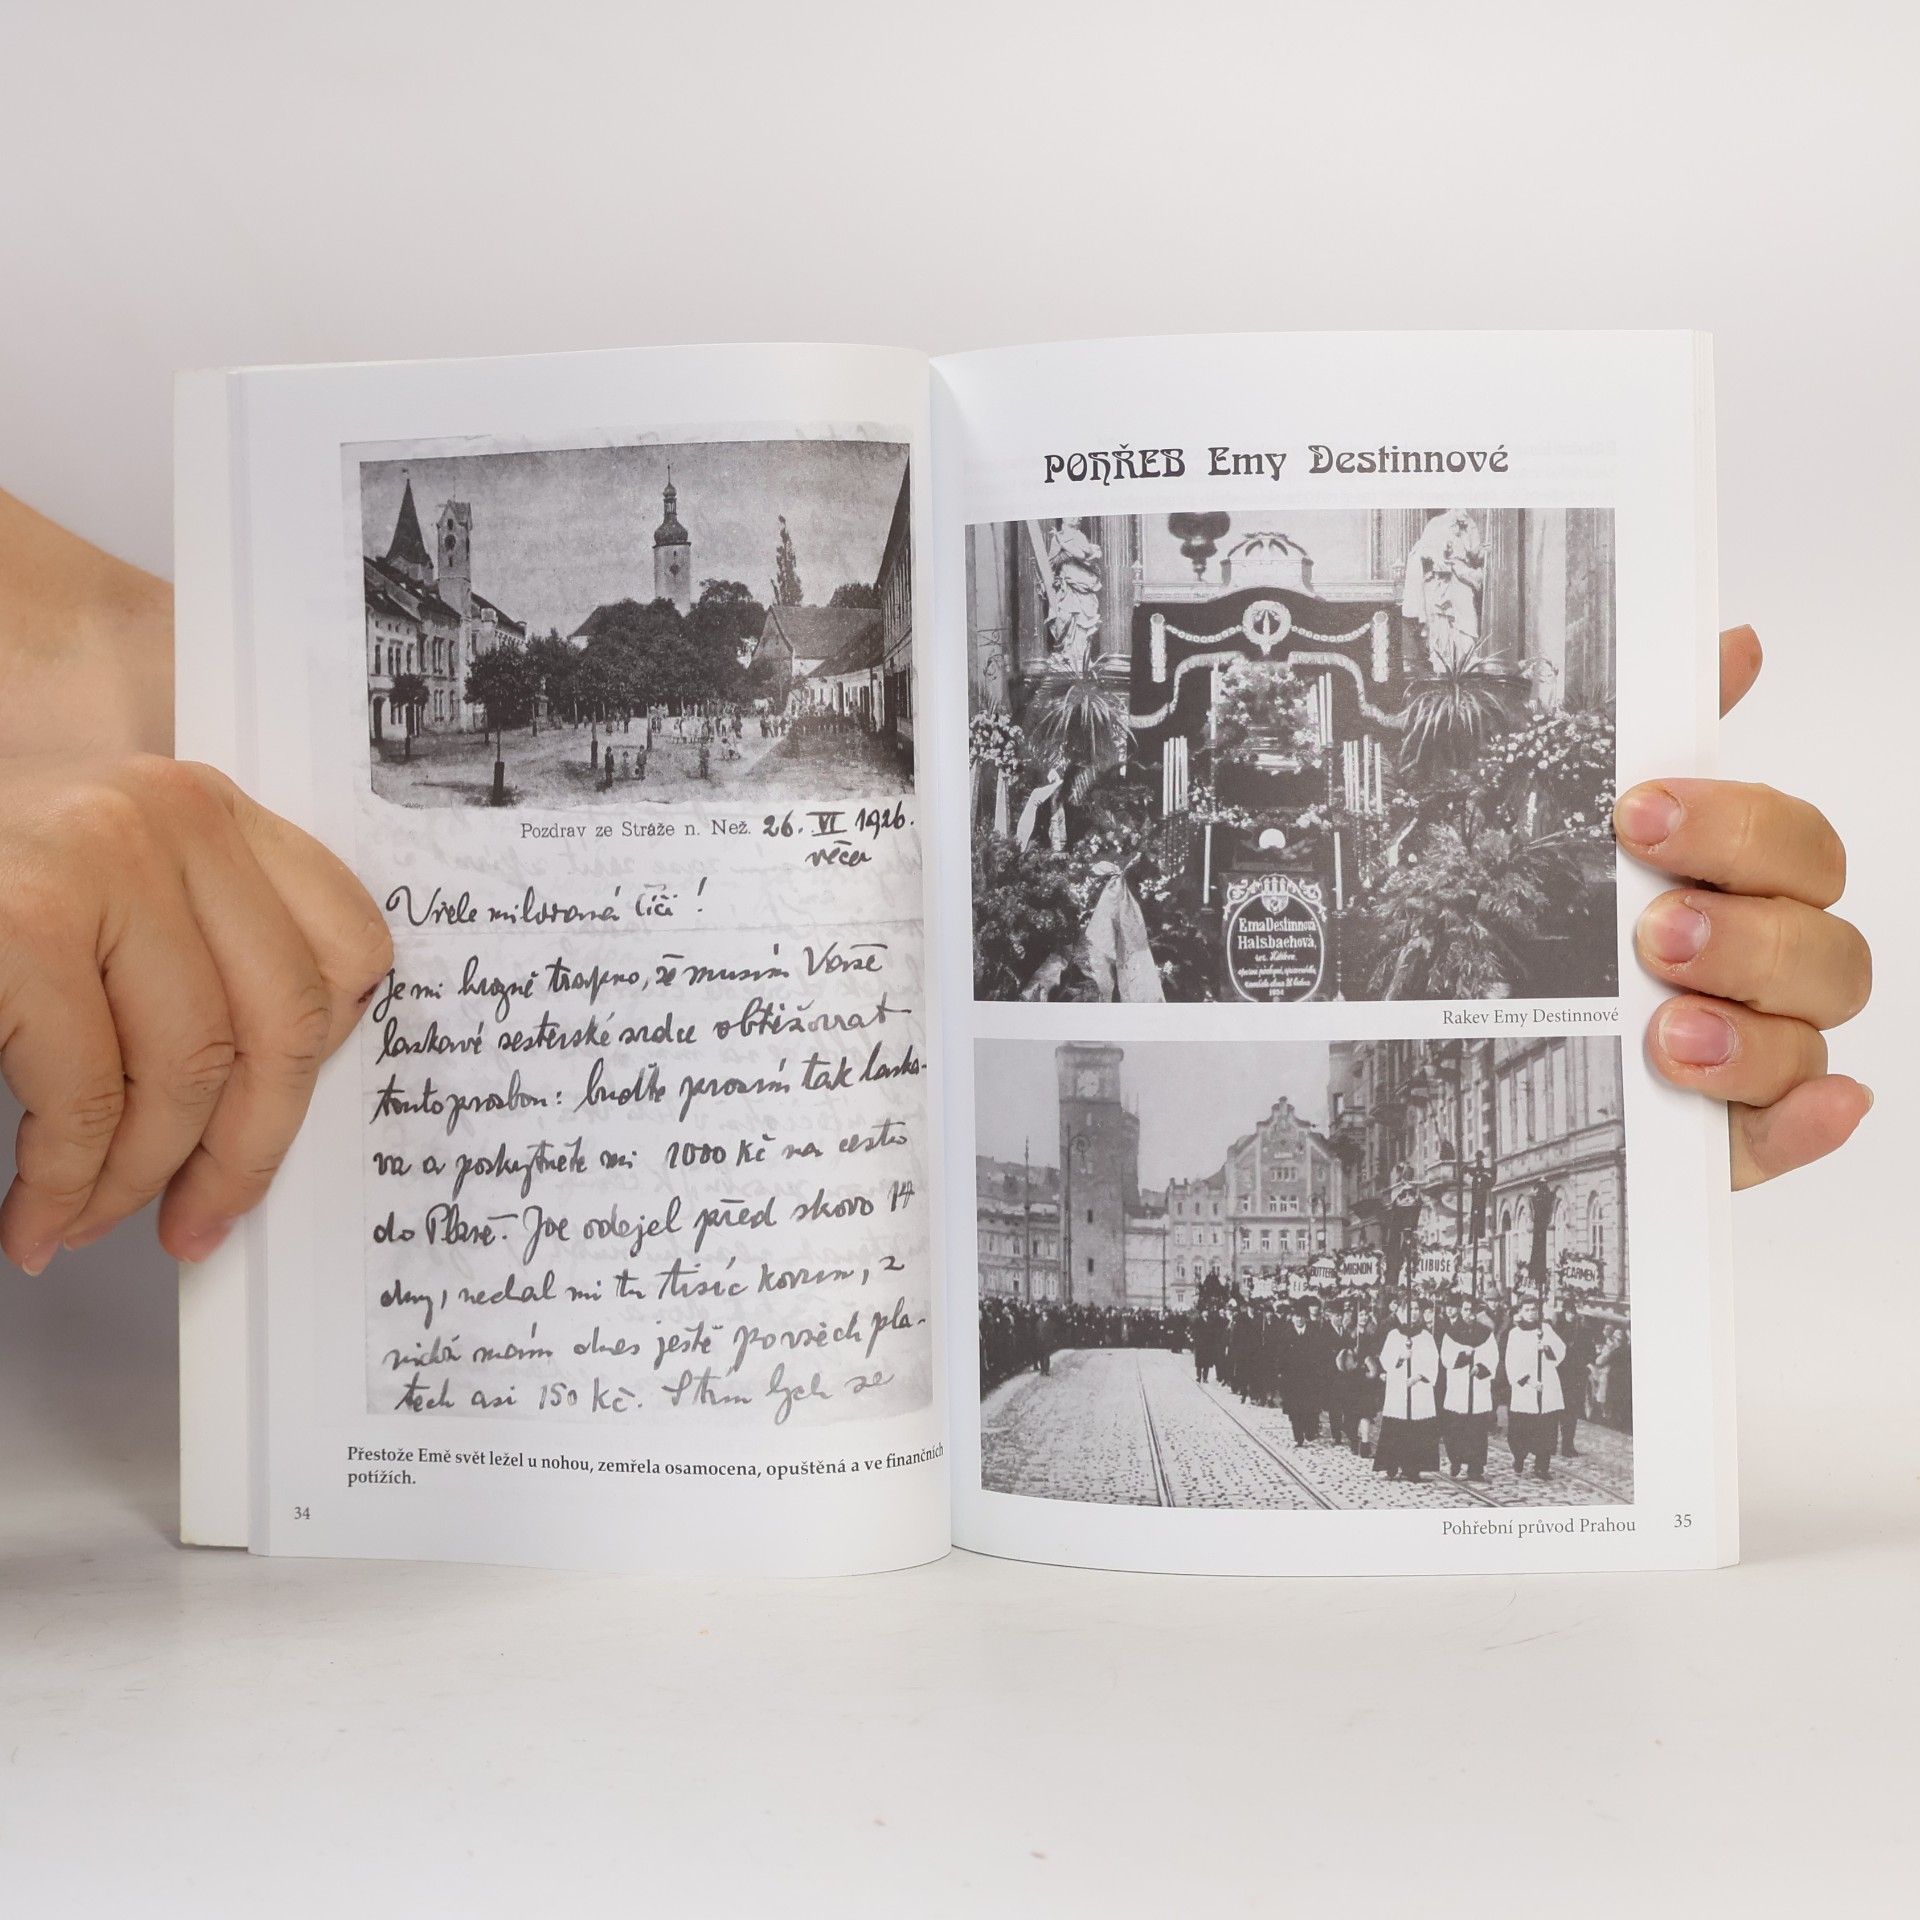 Pozdrav ze Stráže n. Než. 26. VI 1926.
večer
Vřele milovaná Číči!
Je mi hrozně trapno, že musím Vaše
laskavé sesterské srdce obtěžovat
touto prosbou: buďte prosím tak laska-
va a poskytněte mi 1000 Kč na cestu
do Plzně. Joe odejel před skoro 14
dny, nedal mi tu tisíc korun, z
nichž mám dnes ještě po všech pla-
tech asi 150 Kč. S tím bych se
Přestože Emě svět ležel u nohou, zemřela osamocena, opuštěná a ve finančních
potížích.
34
POHŘEB Emy Destinnové
Ema Destinnová
Halsbachová,
1930
Rakev Emy Destinnové
BUTTER
MIGNON
LIBUŠE
CARMEN
Pohřební průvod Prahou
35